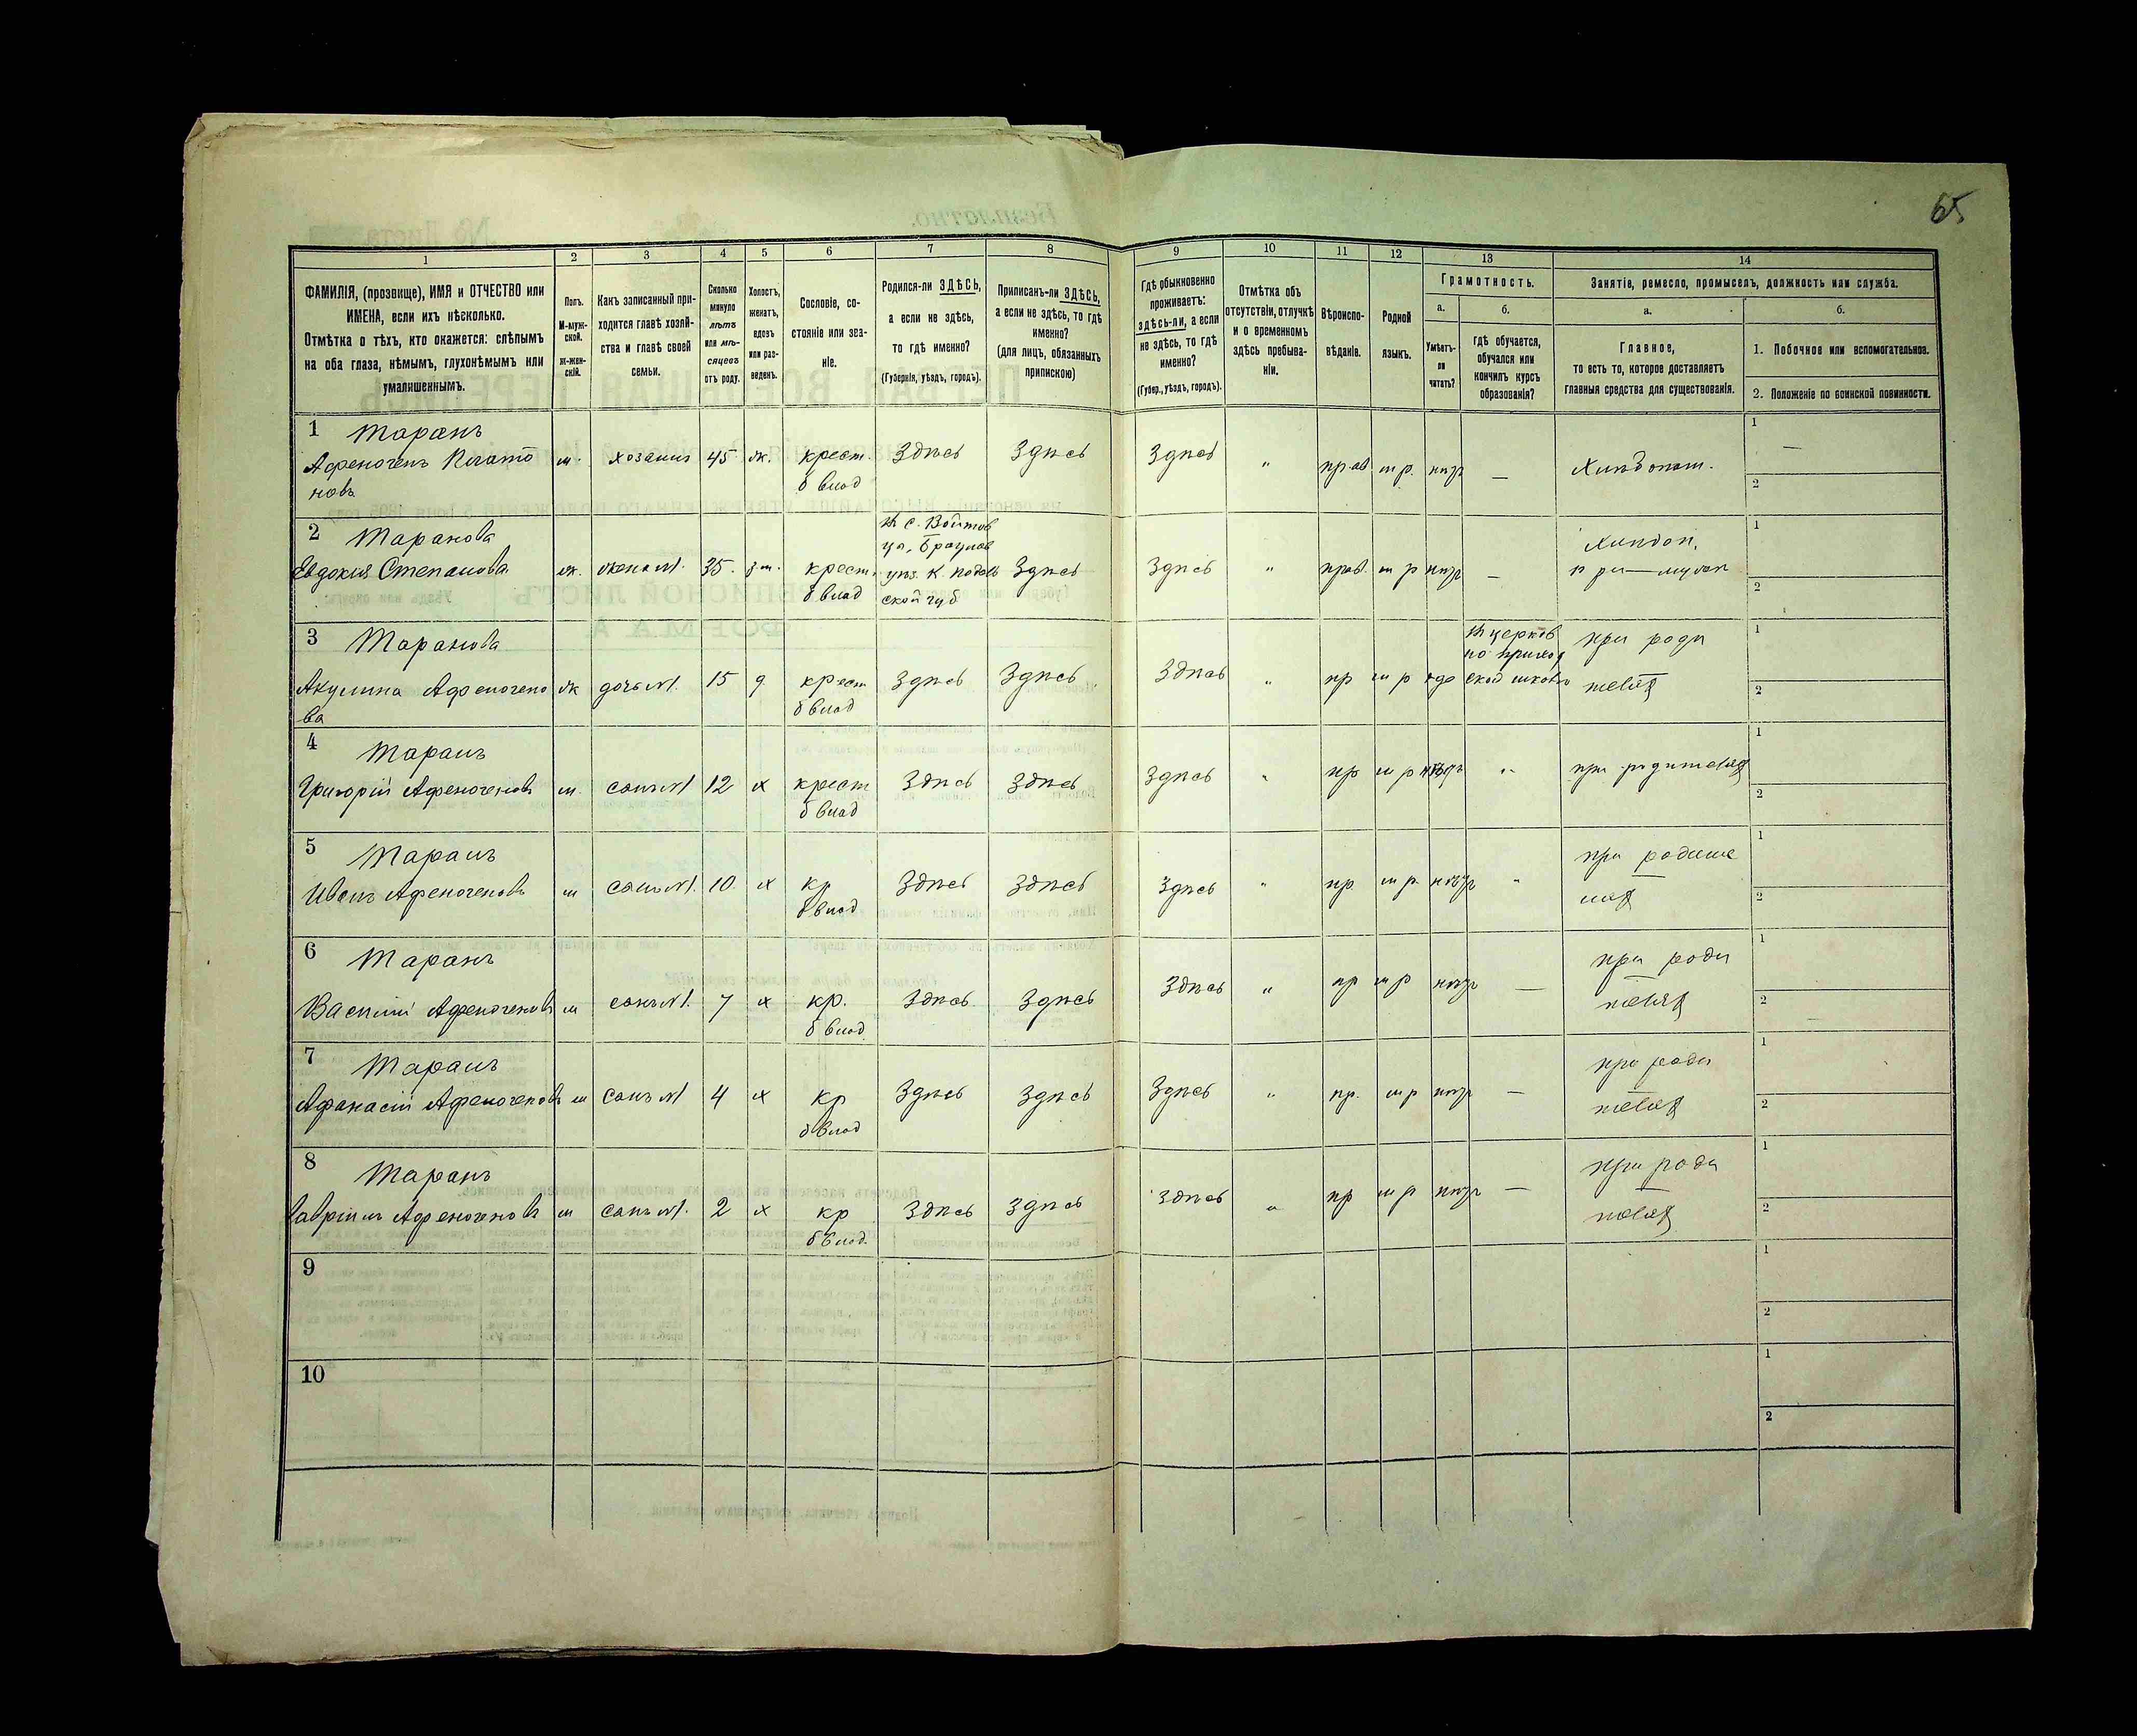 65
1
2
3
4
5
6
7
8
9
10
11
12
13
14
ФАМИЛІЯ, (прозвище), ИМЯ и ОТЧЕСТВО или
ИМЕНА, если ихъ нѣсколько.
Отмѣтка о тѣхъ, кто окажется: слѣпымъ
на оба глаза, нѣмымъ, глухонѣмымъ или
умалишеннымъ.
Полъ.
М-муж-
ской.
Ж-жен-
скій.
Какъ записанный при-
ходится главѣ хозяй-
ства и главѣ своей
семьи.
Сколько
минуло
лѣтъ
или мѣ-
сяцевъ
отъ роду.
Холостъ,
женатъ,
вдовъ
или раз-
веденъ.
Сословіе, со-
стояніе или зва-
ніе.
Родился-ли ЗДѢСЬ,
а если не здѣсь,
то гдѣ именно?
(Губернія, уѣздъ, городъ).
Приписанъ-ли ЗДѢСЬ,
а если не здѣсь, то гдѣ
именно?
(для лицъ, обязанныхъ
припискою)
Гдѣ обыкновенно
проживаетъ:
здѣсь-ли, а если
не здѣсь, то гдѣ
именно?
(Губер., уѣздъ, городъ).
Отмѣтка объ
отсутствіи, отлучкѣ
и о временномъ
здѣсь пребыва-
ніи.
Вѣроиспо-
вѣданіе.
Родной
языкъ.
Грамотность.
а.
Умѣетъ-
ли
читать?
б.
гдѣ обучается,
обучался или
кончилъ курсъ
образованія?
Занятіе, ремесло, промыселъ, должность или служба.
а.
Главное,
то есть то, которое доставляетъ
главныя средства для существованія.
б.
1. Побочное или вспомогательное.
2. Положеніе по воинской повинности.
1 Таранъ
Афеногенъ
новъ
м. хозяинъ 45 ж. крест. Здѣсь Здѣсь Здѣсь " прав т р. —
б влад
1 —
2
2 Таранова
Евдокія Степанова
ж. жена 1. 35. з. крест. б влад
губ.
Здѣсь Здѣсь " прав. т р —
1
2
3 Таранова
Акулина Афеногено
ва
ж дочь 1. 15 д крест б влад Здѣсь Здѣсь Здѣсь " пр т р да
церков
но приход
ской школѣ
при роди
теляхъ
1
2
4 Таранъ
Григорій Афеногеновъ
м. сынъ 1 12 х крест б влад Здѣсь Здѣсь Здѣсь " пр т р "
при родителяхъ
1
2
5 Таранъ
Иванъ Афеногеновъ
м сынъ 1. 10. х кр б влад Здѣсь Здѣсь Здѣсь " пр т р "
при родите
ляхъ
1
2
6 Таранъ
Василій Афеногеновъ
м сынъ 1. 7 х кр. б влад Здѣсь Здѣсь Здѣсь " пр т р —
при роди
теляхъ
1
2
7 Таранъ
Афанасій Афеногеновъ
м сынъ 1 4 х кр б влад Здѣсь Здѣсь Здѣсь " пр. т р —
при роди
теляхъ
1
2
8 Таранъ
Гавріилъ Афеногеновъ
м сынъ 1. 2 х кр б влад. Здѣсь Здѣсь Здѣсь " пр т р —
при роди
теляхъ
1
2
9
1
2
10
1
2